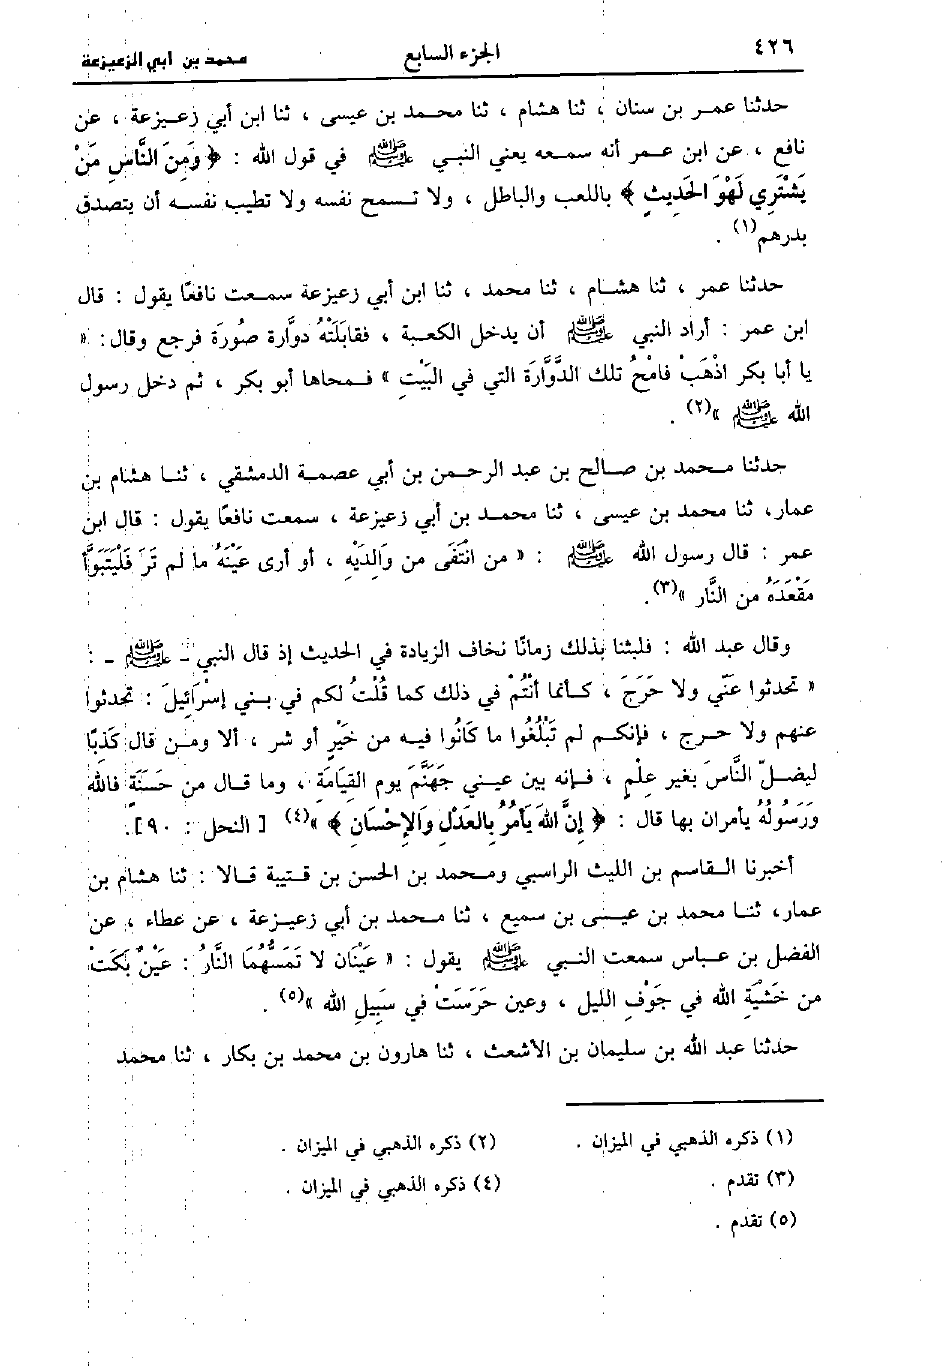 ٤٢٦ الجزء السابع محمد بن ابي الزعيزعة
حدثنا عمر بن سنان ، ثنا هشام ، ثنا محمد بن عيسى ، ثنا ابن أبي زعيزعة ، عن
نافع ، عن ابن عمر أنه سمعه يعني النبي ﷺ في قول الله : ﴿ وَمِنَ النَّاسِ مَنْ
يَشْتَرِي لَهْوَ الحَدِيثِ ﴾ باللعب والباطل ، ولا تسمح نفسه ولا تطيب نفسه أن يتصدق
بدرهم(١) .
حدثنا عمر ، ثنا هشام ، ثنا محمد ، ثنا ابن أبي زعيزعة سمعت نافعًا يقول : قال
ابن عمر : أراد النبي ﷺ أن يدخل الكعبة ، فقابَلَتْهُ دوَّارة صُورَة فرجع وقال: «
يا أبا بكر اذْهَبْ فامْحُ تلك الدَّوَّارَة التي في البَيْتِ » فمحاها أبو بكر ، ثم دخل رسول
الله ﷺ »(٢) .
حدثنا محمد بن صالح بن عبد الرحمن بن أبي عصمة الدمشقي ، ثنا هشام بن
عمار، ثنا محمد بن عيسى ، ثنا محمد بن أبي زعيزعة ، سمعت نافعًا يقول : قال ابن
عمر : قال رسول الله ﷺ : « من انْتَفَى من وَالدَيْهِ ، أو أرى عَيْنَهُ ما لم تَرَ فَلْيَتَبَوَّأ
مَقْعَدَهُ من النَّار »(٣).
وقال عبد الله : فلبثنا بذلك زمانًا نخاف الزيادة في الحديث إذ قال النبي - ﷺ - :
« تحدثوا عَنّي ولا حَرَجَ ، كأنما أنْتُمْ في ذلك كما قُلْتُ لكم في بني إسْرَائيلَ : تحدثوا
عنهم ولا حرج ، فإنكم لم تَبْلُغُوا ما كَانُوا فيه من خَيْرٍ أو شر ، ألا ومن قال كَذبًا
ليضلّ النَّاسَ بغير علْمٍ ، فإنه بين عيني جَهَنَّمَ يوم القيَامَة ، وما قال من حَسَنَة فالله
ورَسُولُهُ يأمران بها قال : ﴿ إنَّ اللهَ يَأمُرُ بِالعَدْلِ وَالإحْسَانِ ﴾ »(٤) [ النحل : ٩٠].
أخبرنا القاسم بن الليث الراسبي ومحمد بن الحسن بن قتيبة قالا : ثنا هشام بن
عمار، ثنا محمد بن عيسى بن سميع ، ثنا محمد بن أبي زعيزعة ، عن عطاء ، عن
الفضل بن عباس سمعت النبي ﷺ يقول : « عَيْنَان لا تَمَسُّهُمَا النَّارُ : عَيْنٌ بَكَتْ
من خَشْيَةِ الله في جَوْفِ الليل ، وعين حَرَسَتْ في سَبِيلِ الله »(٥) .
حدثنا عبد الله بن سليمان بن الأشعث ، ثنا هارون بن محمد بن بكار ، ثنا محمد
(١) ذكره الذهبي في الميزان . (٢) ذكره الذهبي في الميزان .
(٣) تقدم . (٤) ذكره الذهبي في الميزان .
(٥) تقدم .